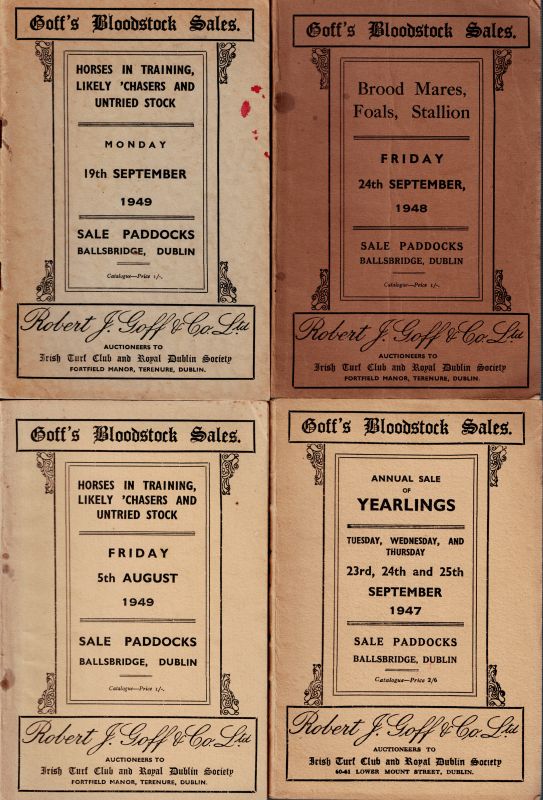 Goff's Bloodstock Sales.
HORSES IN TRAINING,
LIKELY 'CHASERS AND
UNTRIED STOCK
MONDAY
19th SEPTEMBER
1949
SALE PADDOCKS
BALLSBRIDGE, DUBLIN
Catalogue—Price 1/-.
Robert J. Goff & Co. Ltd
AUCTIONEERS TO
Irish Turf Club and Royal Dublin Society
FORTFIELD MANOR, TERENURE, DUBLIN.
Goff's Bloodstock Sales.
Brood Mares,
Foals, Stallion
FRIDAY
24th SEPTEMBER,
1948
SALE PADDOCKS
BALLSBRIDGE, DUBLIN
Catalogue—Price 1/-.
Robert J. Goff & Co. Ltd
AUCTIONEERS TO
Irish Turf Club and Royal Dublin Society
FORTFIELD MANOR, TERENURE, DUBLIN.
Goff's Bloodstock Sales.
HORSES IN TRAINING,
LIKELY 'CHASERS AND
UNTRIED STOCK
FRIDAY
5th AUGUST
1949
SALE PADDOCKS
BALLSBRIDGE, DUBLIN
Catalogue—Price 1/-.
Robert J. Goff & Co. Ltd
AUCTIONEERS TO
Irish Turf Club and Royal Dublin Society
FORTFIELD MANOR, TERENURE, DUBLIN.
Goff's Bloodstock Sales.
ANNUAL SALE
OF
YEARLINGS
TUESDAY, WEDNESDAY, AND
THURSDAY
23rd, 24th and 25th
SEPTEMBER
1947
SALE PADDOCKS
BALLSBRIDGE, DUBLIN
Catalogue—Price 2/6
Robert J. Goff & Co. Ltd
AUCTIONEERS TO
Irish Turf Club and Royal Dublin Society
60-61 LOWER MOUNT STREET, DUBLIN.